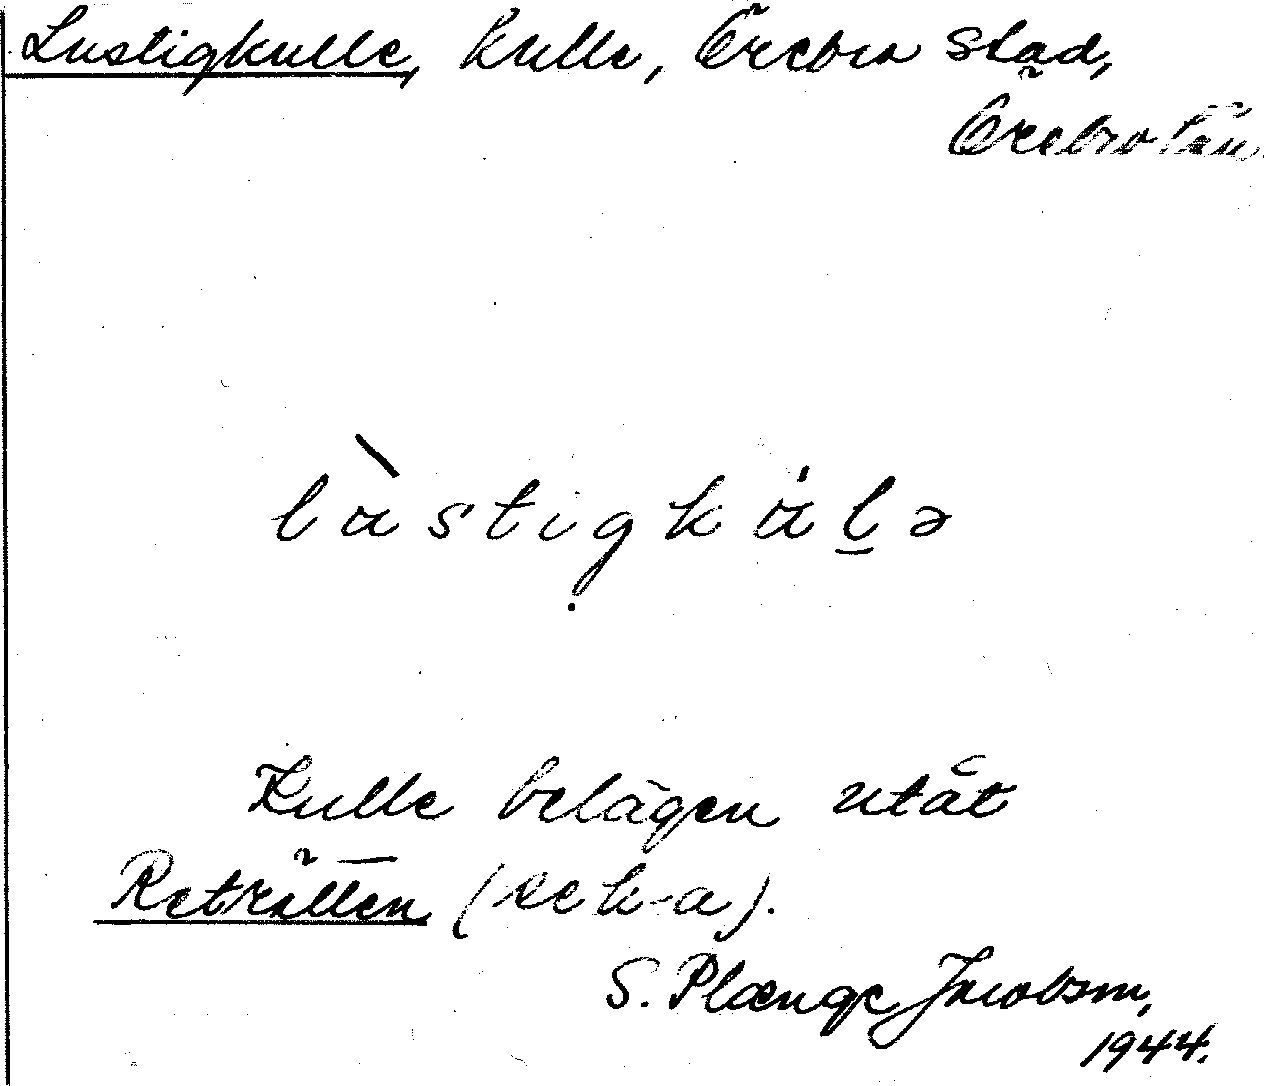 Lustigkulle, kulle, Örebro stad,
Örebro län.
lùstigkúl̲ə
Kulle belägen utåt
Reträtten (se k-a).
S. Plænge Jacobson,
1944.